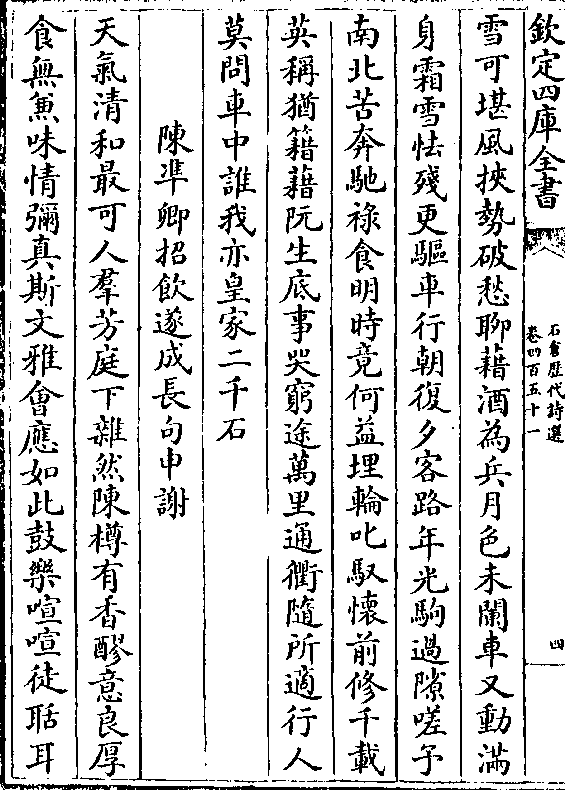 欽定四庫全書
石倉歷代詩選
卷四百五十一
四
雪可堪風挾勢破愁聊藉酒為兵月色未闌車又動滿
身霜雪怯殘更驅車行朝復夕客路年光駒過隙嗟予
南北苦奔馳祿食明時竟何益埋輪叱馭懷前修千載
英稱猶籍藉阮生底事哭窮途萬里通衢隨所適行人
莫問車中誰我亦皇家二千石
陳準卿招飲遂成長句申謝
天氣清和最可人羣芳庭下雜然陳樽有香醪意良厚
食無兼味情彌真斯文雅會應如此鼓樂喧喧徒聒耳